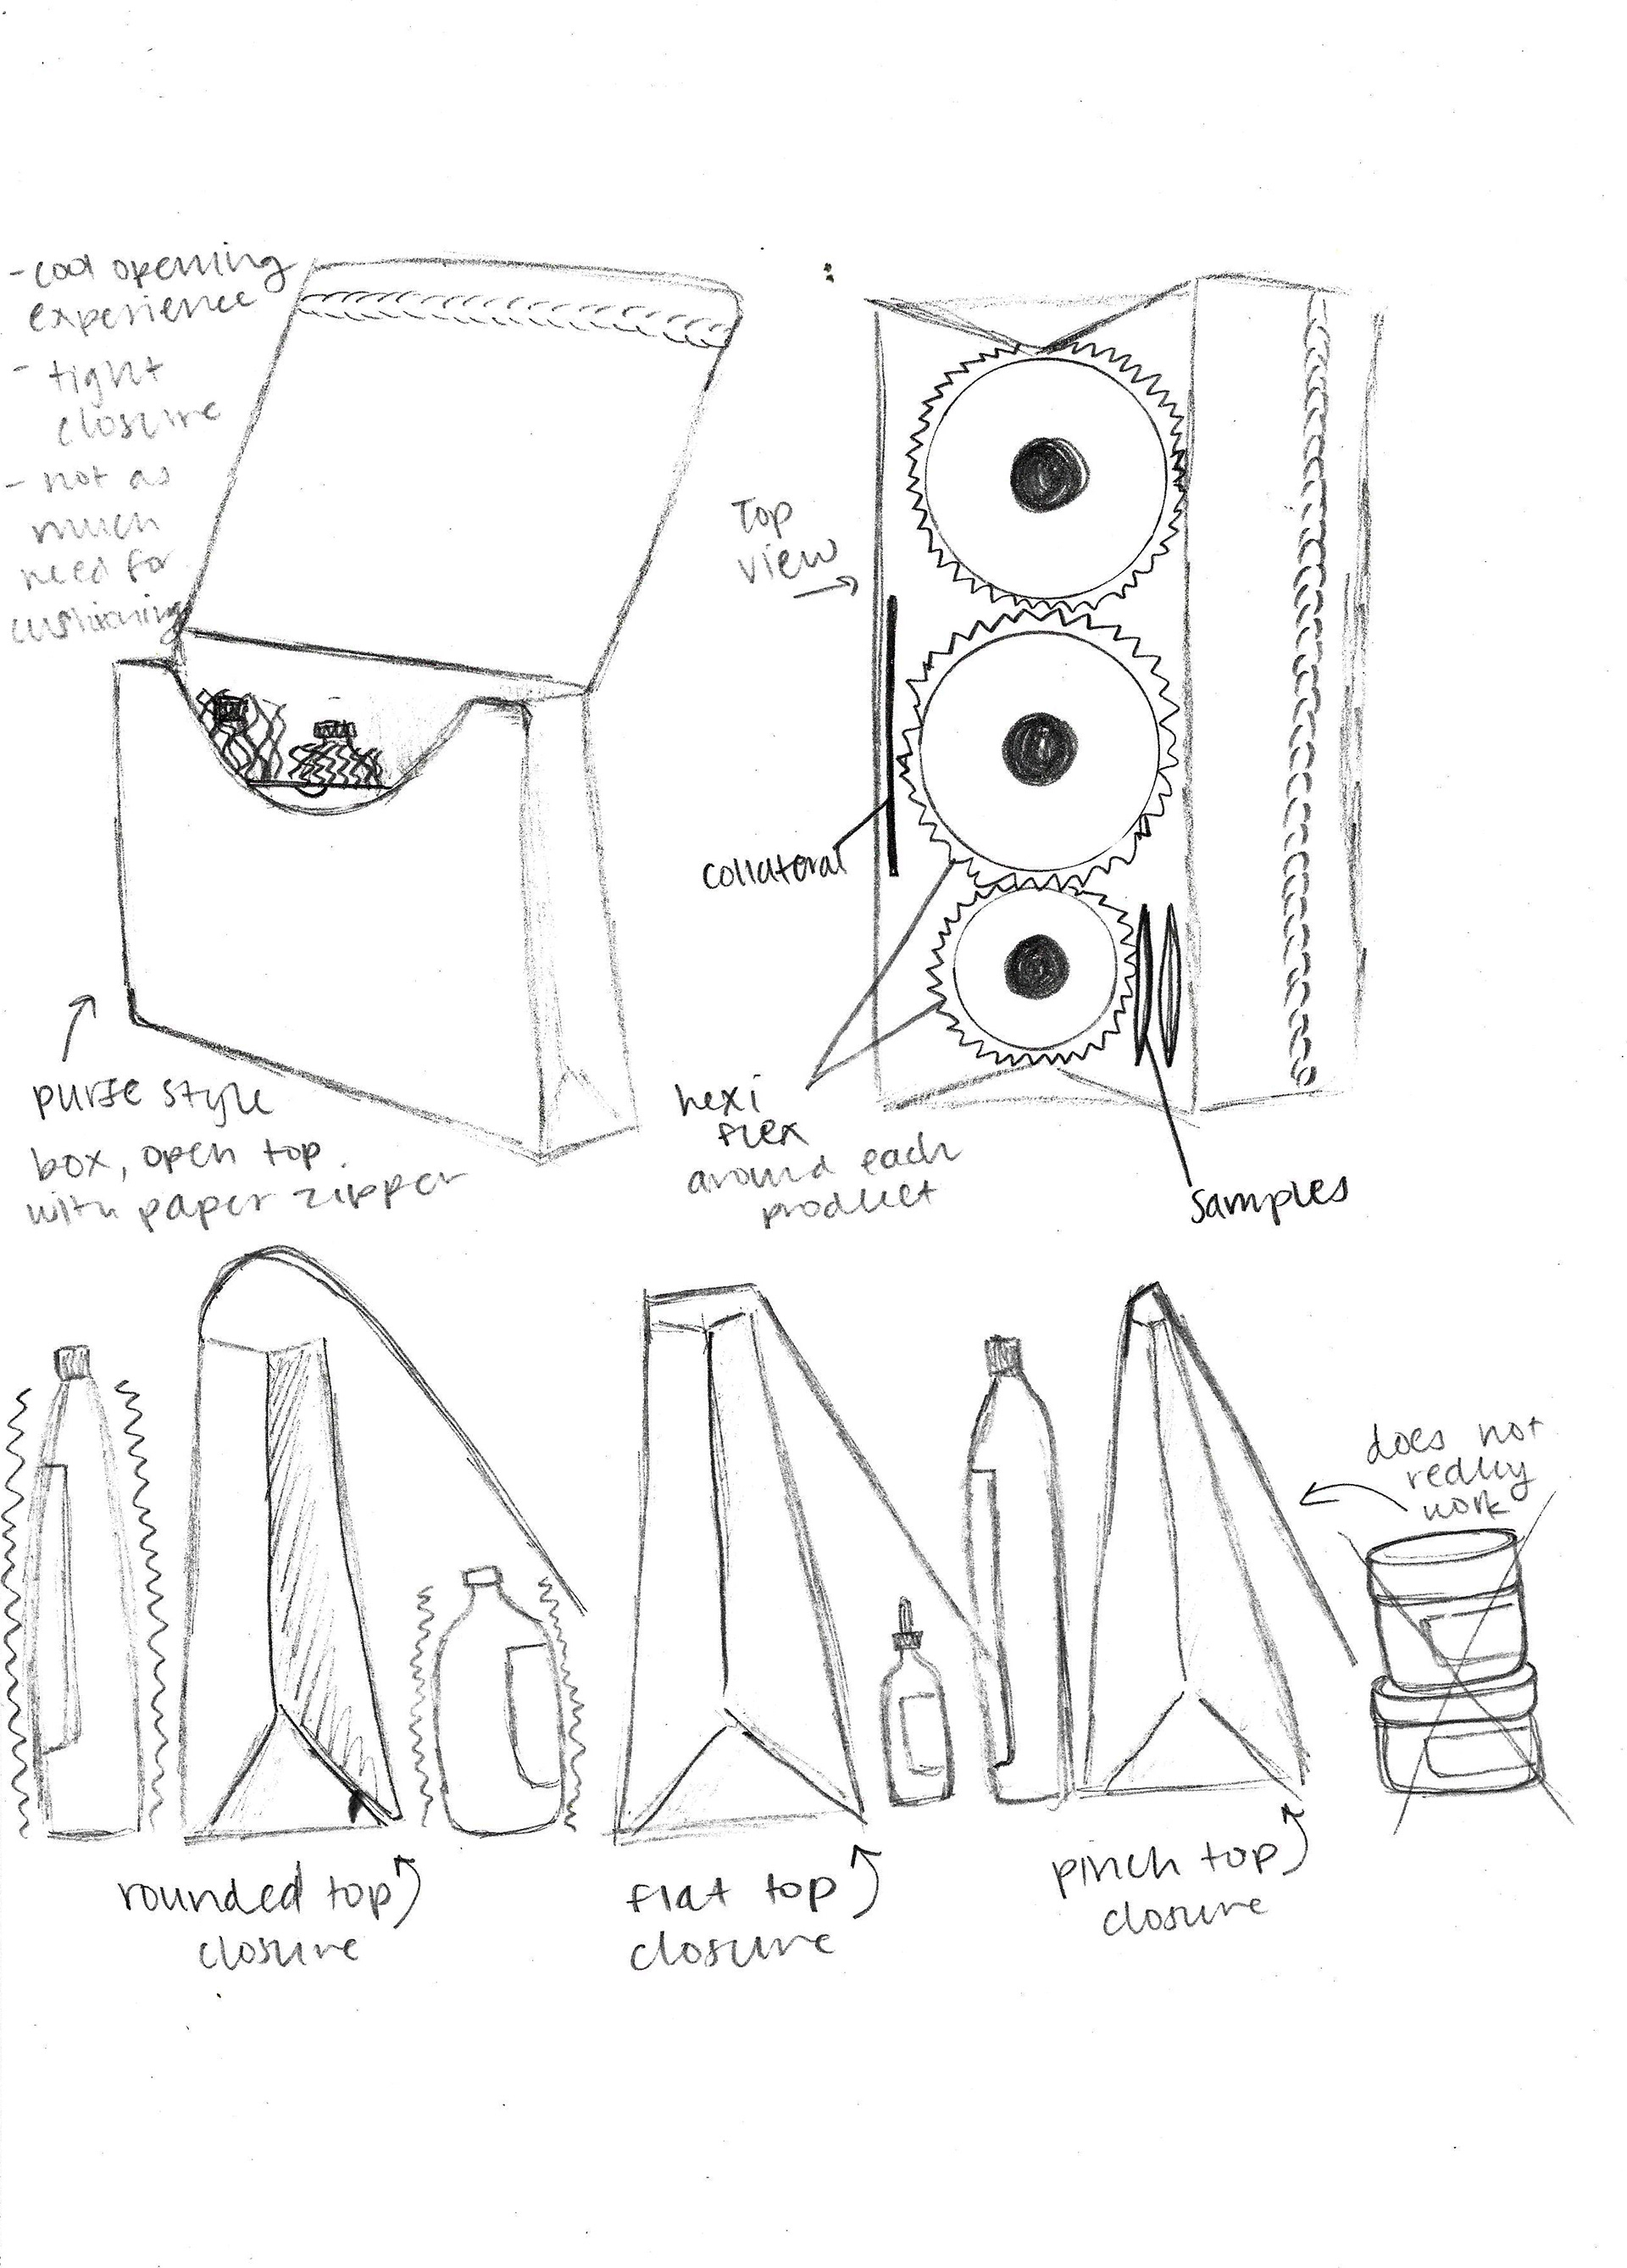 - cool opening
experience
- tight
closure
- not as
much
need for
cushioning
purse style
box, open top
with paper zipper
Top
view
collateral
hexi
flex
around each
product
samples
does not
really
work
rounded top
closure
flat top
closure
pinch top
closure